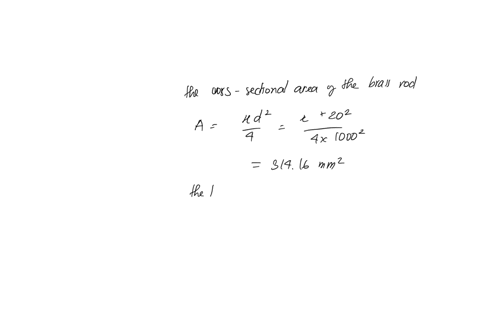 the cross-sectional area of the brass rod
A = πd²/4 = π × 20²/4 × 1000²
= 314.16 mm²
the l